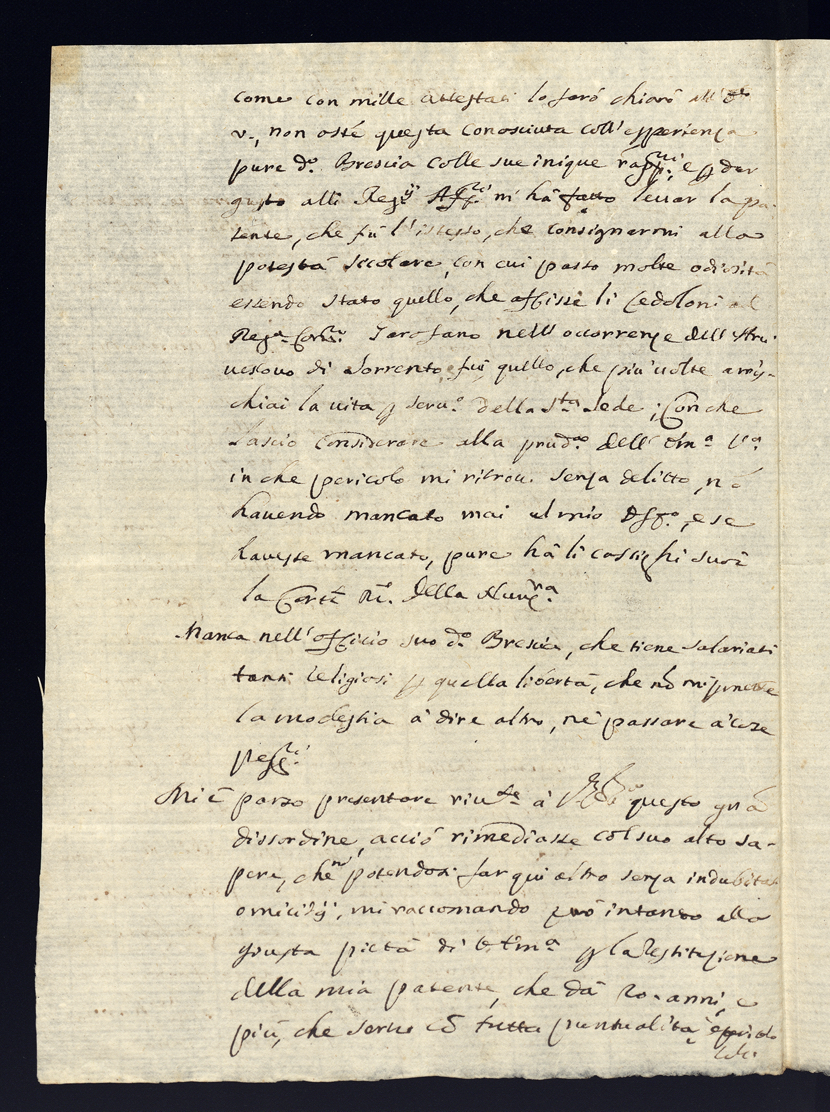 come con mille attestati lo farò chiaro all'
v., non ostẽ questa conosciuta coll'esperienza
pure d.º Brescia colle sue inique rapp.ni, e p dar
gusto alli Regij Aff.ri m'hà fatto levar la pa-
tente, che fù l'istesso, che consignarmi alla
potestà secolare, con cui passo molte odiosità
essendo stato quello, che affisse li Cedoloni al
Reg.º Cons.ro Garofano nell'occorrenze dell'Arci-
vescovo di Sorrento, e fui quello, che più volte arris-
chiai la vita p serv.º della S.ta Sede; Con che
lascio considerare alla prud.a dell' Em.a V.a
in che pericolo mi ritrovo senza delitto, nõ
havendo mancato mai al mio Off.º, e se
havesse mancato, pure hà li castighi suoi
la Corte della Nunz.ra
Manca nell'officio suo d.º Brescia, che tiene salariati
tanti religiosi p quella libertà, che nõ mi pmette
la modestia à dire altro, nè passare à cose
Mi è parso presentare riv.te à questo grã
dissordine, acciò rimediasse col suo alto sa-
pere, che nõ potendosi far qui altro senza indubitati
omicidij, mi raccomando però intanto alla
giusta pietà di V. Em.a p la restituzione
della mia patente, che dà 20. anni, e
più, che servo cõ tutta puntualità,